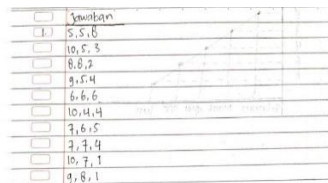 Jawaban
1. 5,5,8
10,5,3
8,8,2
9,5,4
6,6,6
10,4,4
7,6,5
7,7,4
10,7,1
9,8,1